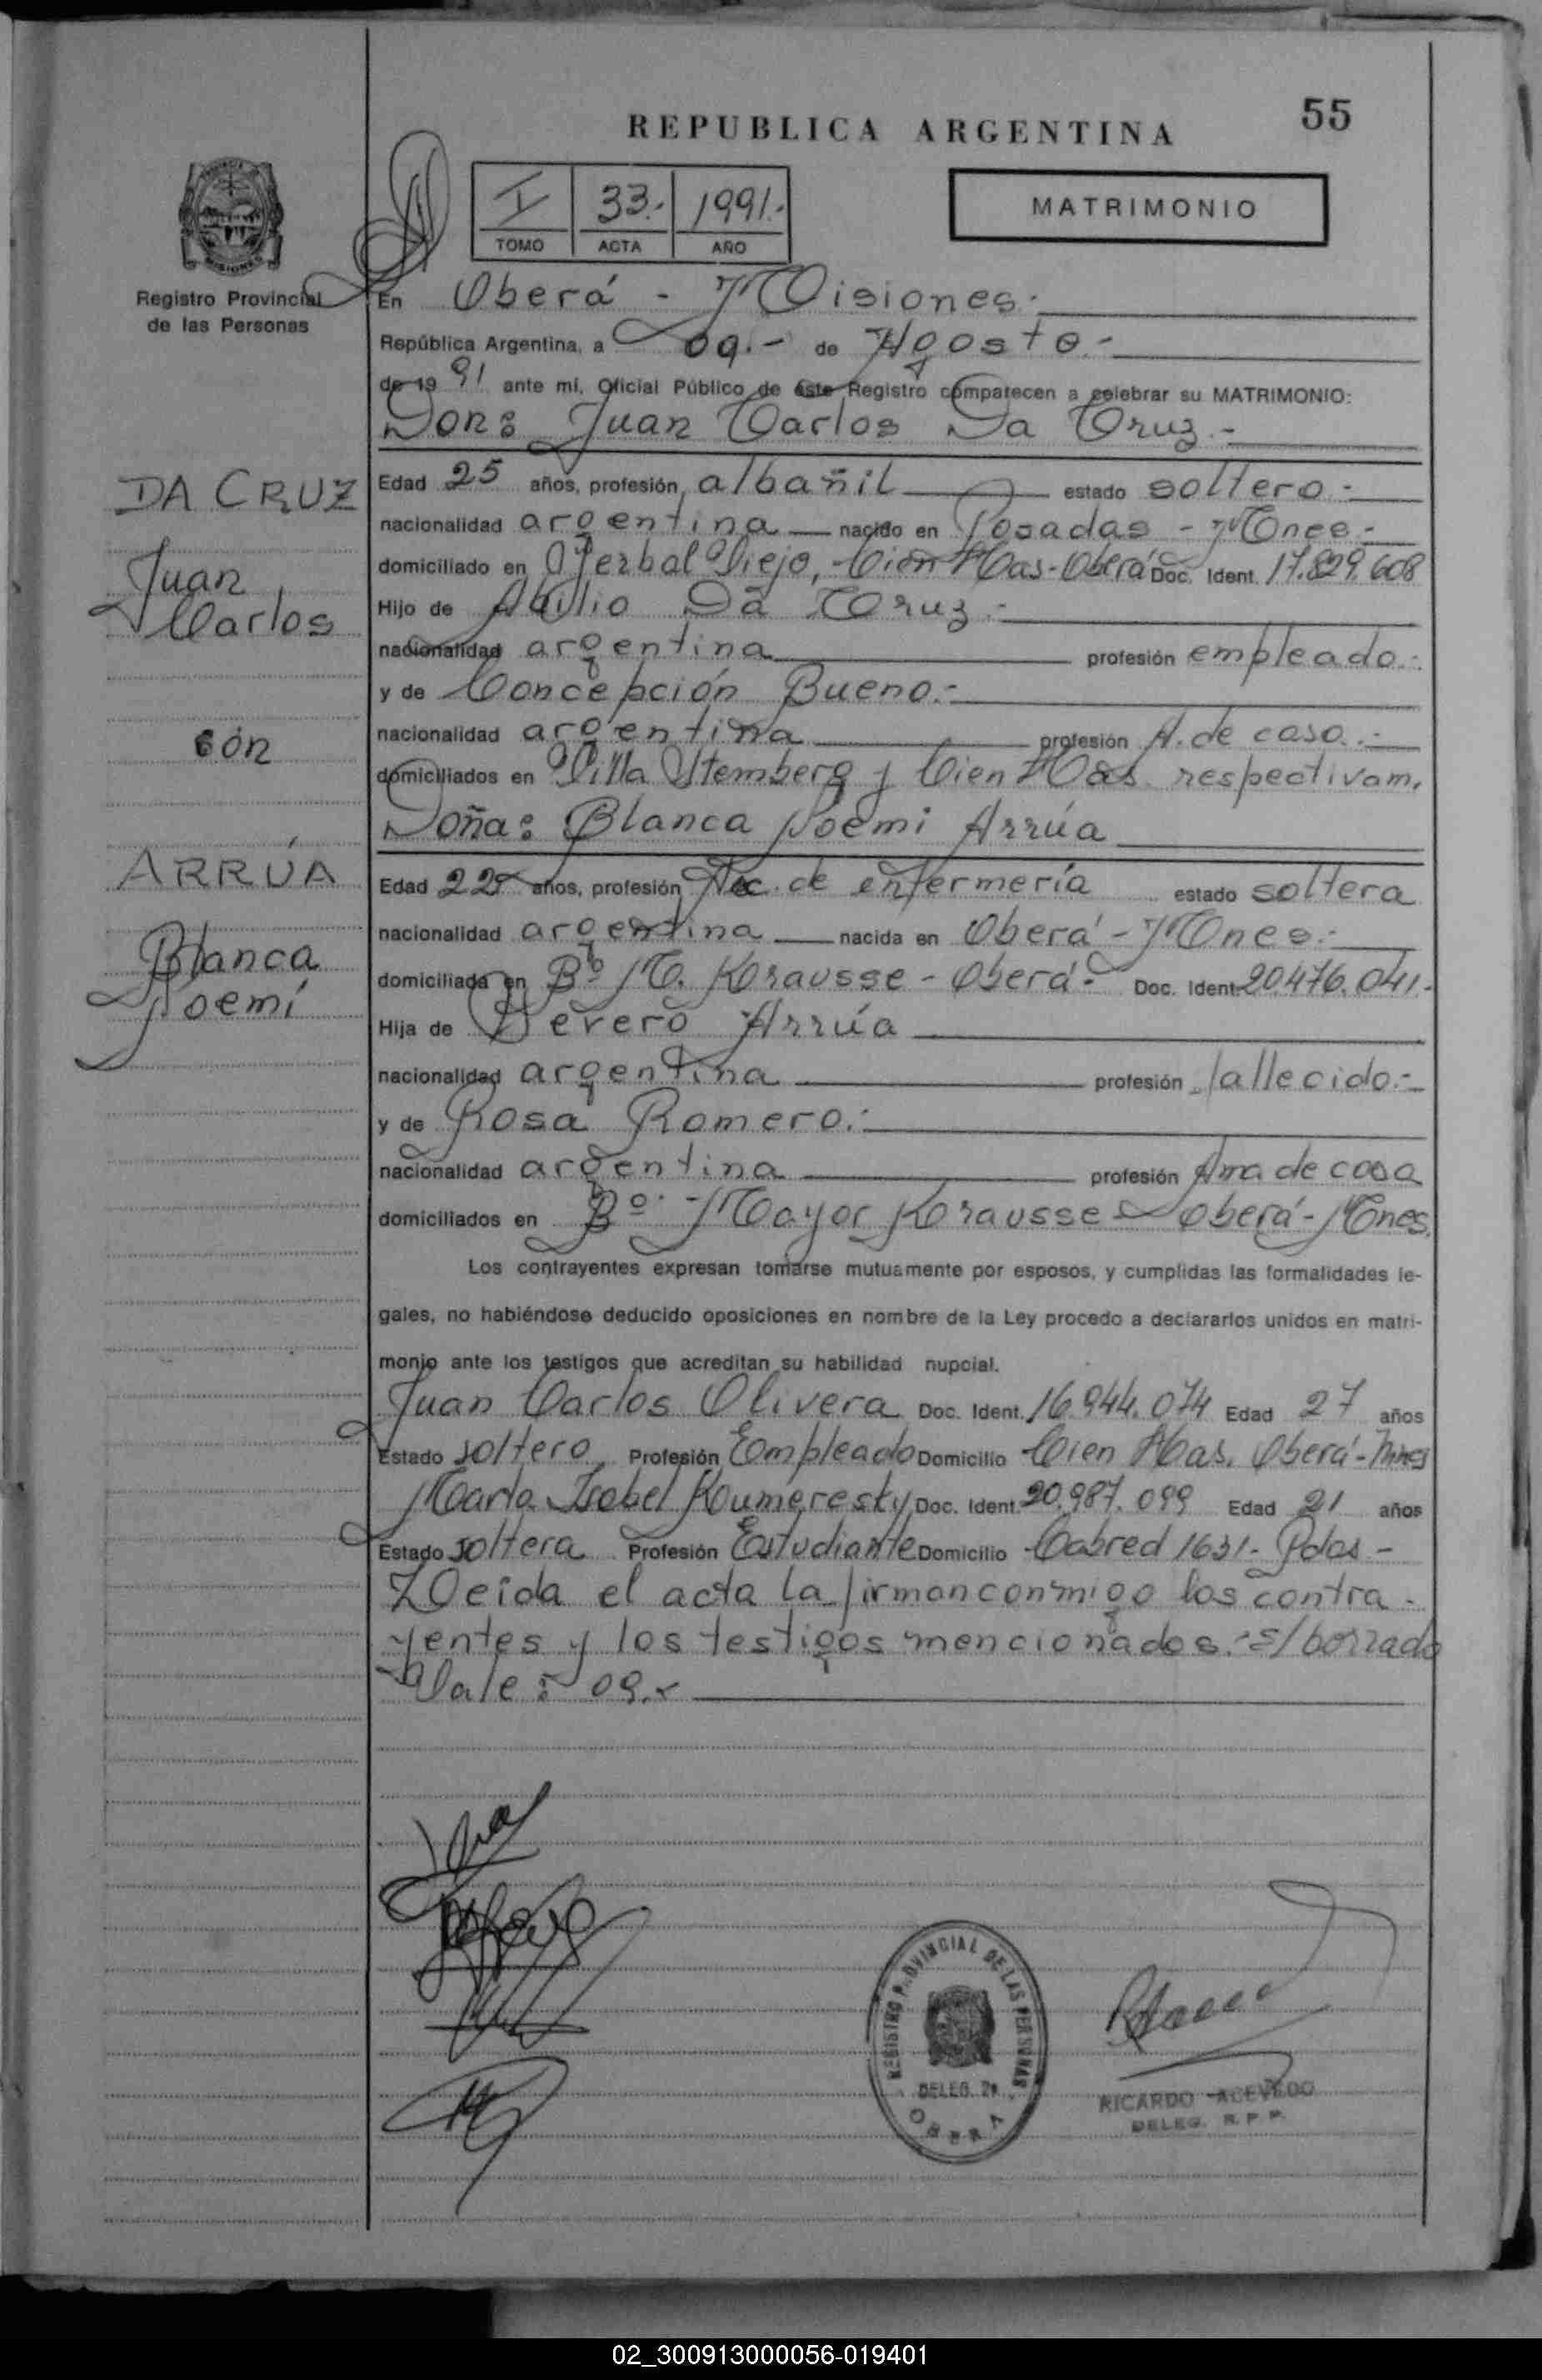 55
REPUBLICA ARGENTINA
I 33.- 1991.-
TOMO ACTA AÑO
MATRIMONIO
Registro Provincial
de las Personas
En Oberá - Misiones.-
República Argentina, a 09.- de Agosto.-
de 19 91 ante mí, Oficial Público de este Registro comparecen a celebrar su MATRIMONIO:
Don: Juan Carlos Da Cruz.-
DA CRUZ
Juan
Carlos
con
ARRÚA
Blanca
Noemí
Edad 25 años, profesión albañil estado soltero.-
nacionalidad argentina nacido en Posadas - Mnes.-
domiciliado en Yerbal Viejo, Cien Has-Oberá Doc. Ident. 17.829.608
Hijo de Abilio Da Cruz.-
nacionalidad argentina profesión empleado.-
y de Concepción Bueno.-
nacionalidad argentina profesión A. de casa.-
domiciliados en Villa Stemberg y Cien Has respectivam.
Doña: Blanca Noemi Arrúa
Edad 22 años, profesión Aux. de enfermería estado soltera
nacionalidad argentina nacida en Oberá - Mnes.-
domiciliada en Bº M. Krausse - Oberá - Doc. Ident. 20.476.041.-
Hija de Severo Arrúa
nacionalidad argentina profesión fallecido.-
y de Rosa Romero.-
nacionalidad argentina profesión Ama de casa
domiciliados en Bº. Mayor Krausse - Oberá - Mnes.
Los contrayentes expresan tomarse mutuamente por esposos, y cumplidas las formalidades le-
gales, no habiéndose deducido oposiciones en nombre de la Ley procedo a declararlos unidos en matri-
monio ante los testigos que acreditan su habilidad nupcial.
Juan Carlos Olivera Doc. Ident. 16.944.074 Edad 27 años
Estado soltero Profesión Empleado Domicilio Cien Has. Oberá - Mnes
María Isabel Koumeresky Doc. Ident. 20.987.099 Edad 21 años
Estado soltera Profesión Estudiante Domicilio Cabred 1631 - Pdas -
Leída el acta la firman conmigo los contra-
yentes y los testigos mencionados.- s/borrado
Vale: 09.-
REGISTRO PROVINCIAL DE LAS PERSONAS
DELEG.
OBERA
RICARDO ACEVEDO
DELEG. R.P.P.
02_300913000056-019401